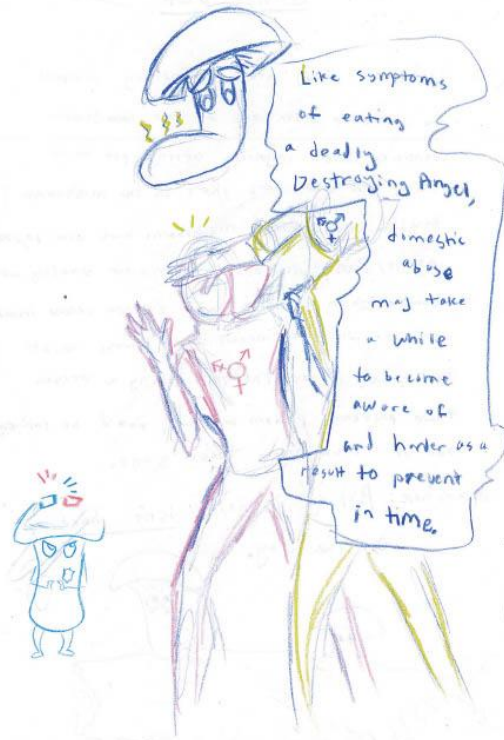 Like symptoms
of eating
a deadly
Destroying Angel,
domestic
abuse
may take
a while
to become
aware of
and harder as a
result to prevent
in time.